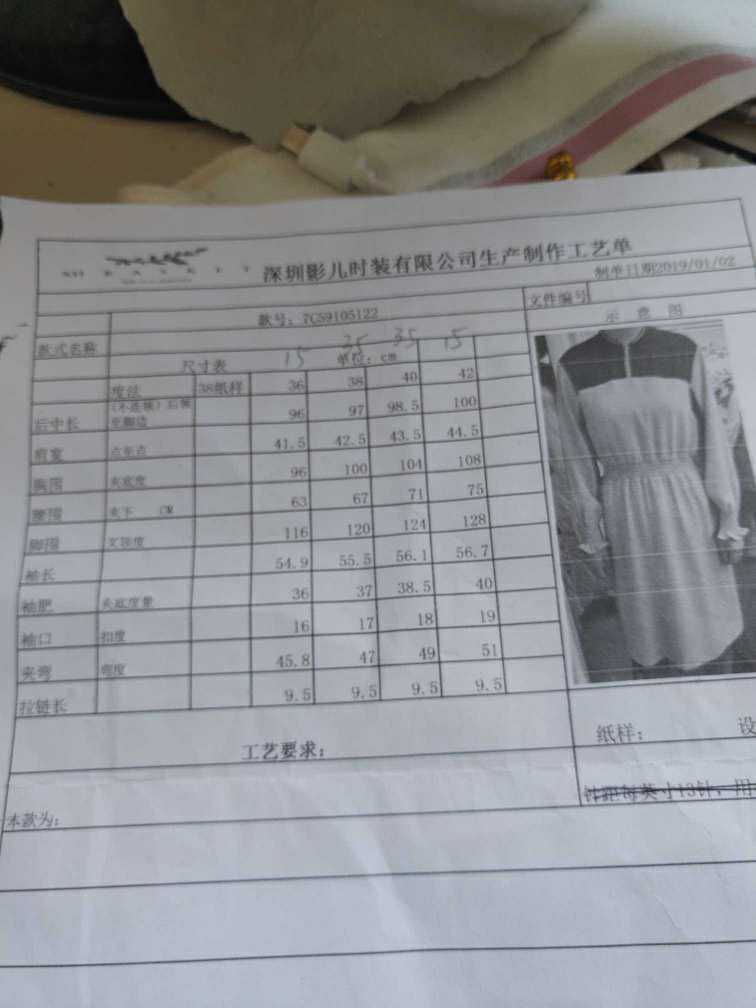 深圳影儿时装有限公司生产制作工艺单
制单日期2019/01/02
款号：7C59105122
文件编号
款式名称
示 意 图
15 25 35 15
尺寸表 单位：cm
度法 38纸样 36 38 40 42
后中长 (不连领) 后领至脚边 96 97 98.5 100
肩宽 点至点 41.5 42.5 43.5 44.5
胸围 夹底度 96 100 104 108
腰围 夹下 CM 63 67 71 75
脚围 116 120 124 128
袖长 54.9 55.5 56.1 56.7
袖肥 夹底度量 36 37 38.5 40
袖口 扣度 16 17 18 19
夹弯 弯度 45.8 47 49 51
拉链长 9.5 9.5 9.5 9.5
工艺要求：
纸样： 设
针距每英寸13针，用
本款为：